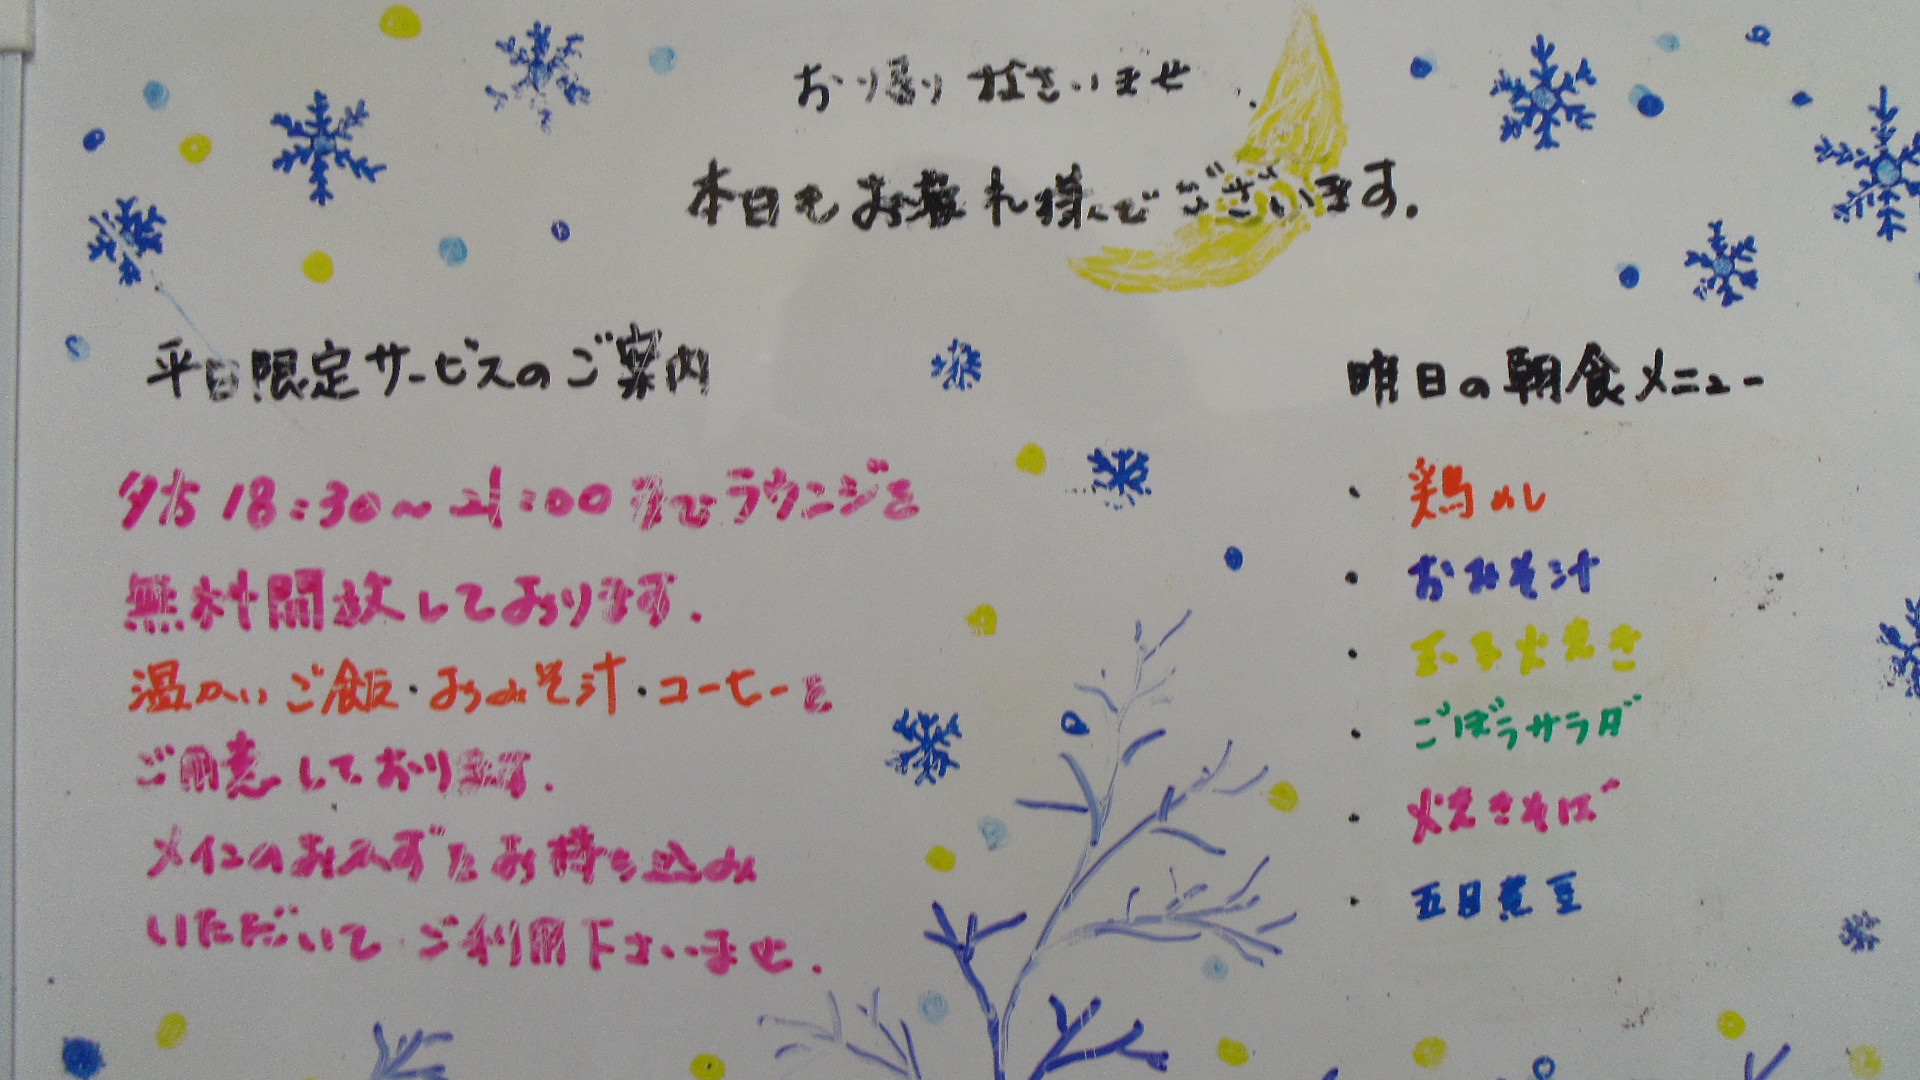 お帰りなさいませ.
本日もお疲れ様でございます.
平日限定サービスのご案内
夕方18:30～21:00までラウンジを
無料開放しております.
温かいご飯・おみそ汁・コーヒーを
ご用意しております.
メインのおかずをお持ち込み
いただいてご利用下さいませ.
明日の朝食メニュー
・鶏めし
・おみそ汁
・玉子焼き
・ごぼうサラダ
・焼きそば
・五目煮豆